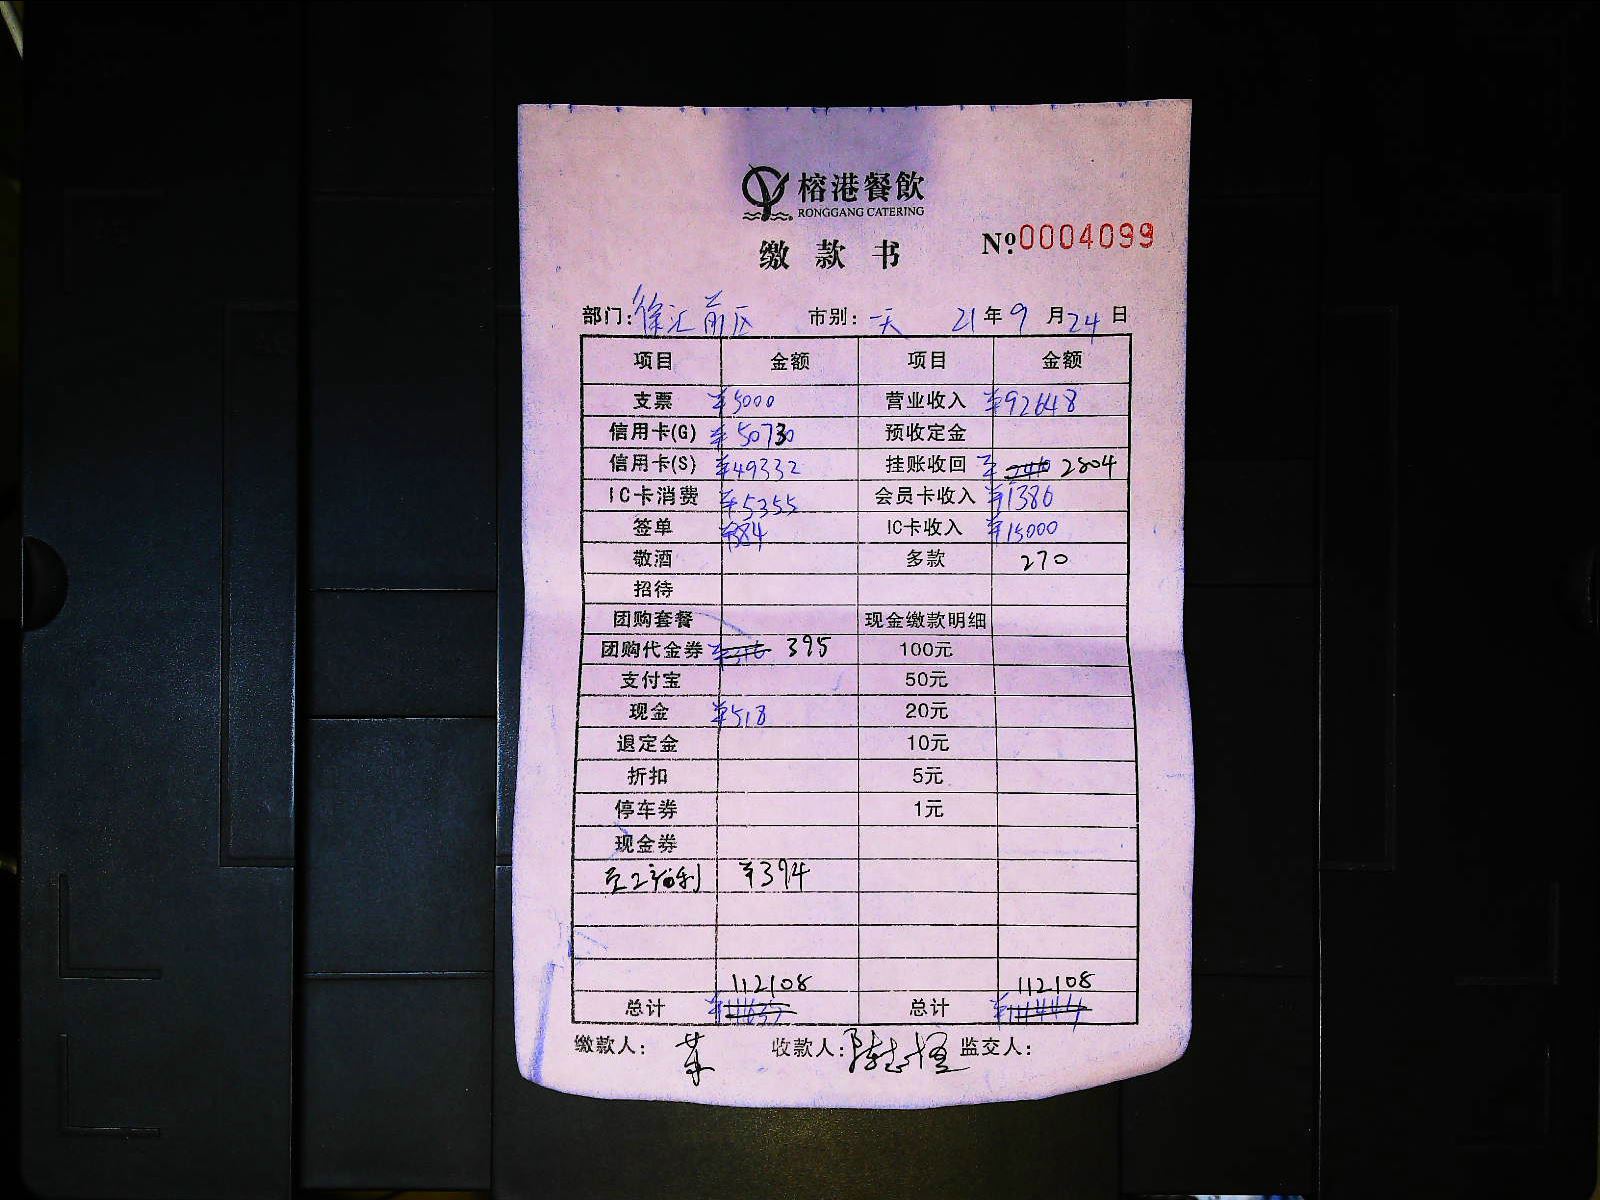 榕港餐飲
RONGGANG CATERING
缴款书 №0004099
部门: 徐汇前区 市别: 一天 21年9月24日
项目 金额 项目 金额
支票 ¥5000 营业收入 ¥92648
信用卡(G) ¥50730 预收定金
信用卡(S) ¥49332 挂账收回 ¥ 2804
IC卡消费 ¥5355 会员卡收入 ¥1386
签单 ¥384 IC卡收入 ¥15000
敬酒 多款 270
招待
团购套餐 现金缴款明细
团购代金券 395 100元
支付宝 50元
现金 ¥518 20元
退定金 10元
折扣 5元
停车券 1元
现金券
员工福利 ¥394
112108 112108
总计 总计
缴款人: 收款人: 监交人: